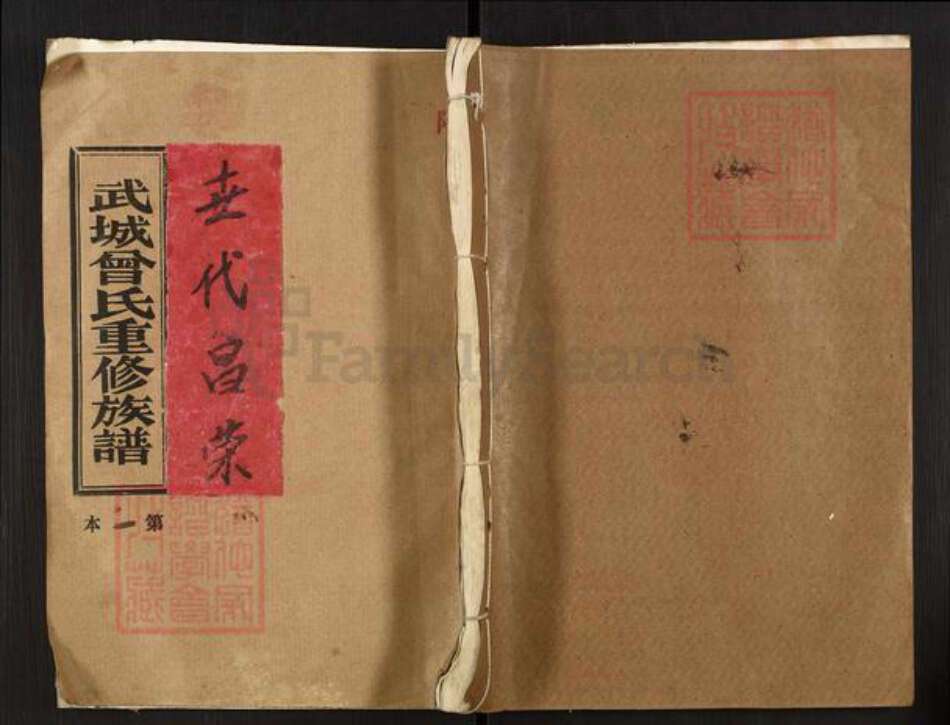 武城曾氏重修族譜
世代昌荣
第一本
FamilySearch